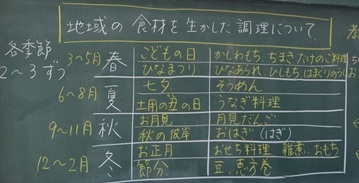 地域の食材を生かした調理について
各季節
2～3ずつ
3～5月 春 こどもの日 かしわもち ちまき たけのこ料理
ひなまつり ひなあられ ひしもち はまぐりのうしお
6～8月 夏 七夕 そうめん
土用の丑の日 うなぎ料理
9～11月 秋 お月見 月見だんご
秋の彼岸 おはぎ（はぎ）
12～2月 冬 お正月 おせち料理 雑煮 おもち
節分 豆、恵方巻